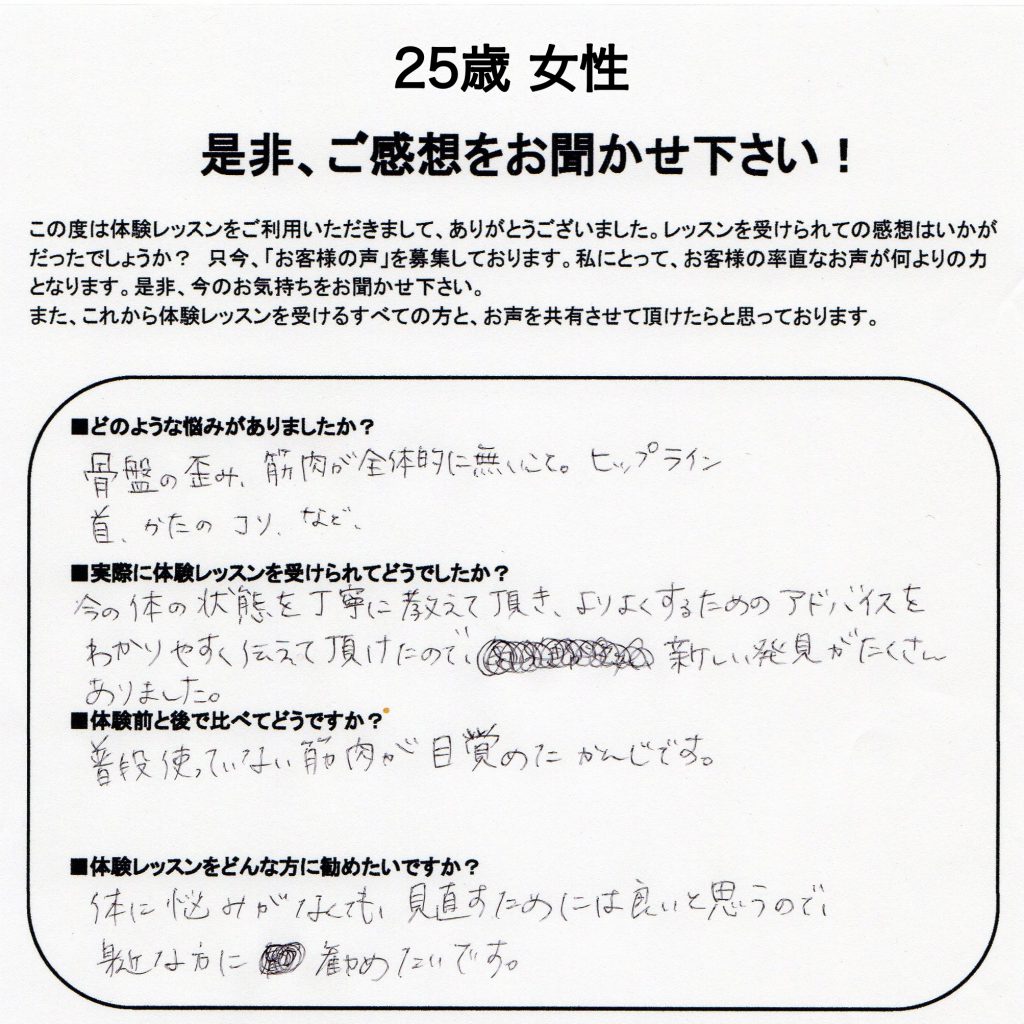 25歳 女性
是非、ご感想をお聞かせ下さい！
この度は体験レッスンをご利用いただきまして、ありがとうございました。レッスンを受けられての感想はいかが
だったでしょうか？　只今、「お客様の声」を募集しております。私にとって、お客様の率直なお声が何よりの力
となります。是非、今のお気持ちをお聞かせ下さい。
また、これから体験レッスンを受けるすべての方と、お声を共有させて頂けたらと思っております。
■どのような悩みがありましたか？
骨盤の歪み、筋肉が全体的に無いこと。ヒップライン
首、かたのコリ、など、
■実際に体験レッスンを受けられてどうでしたか？
今の体の状態を丁寧に教えて頂き、よりよくするためのアドバイスを
わかりやすく伝えて頂けたので、新しい発見がたくさん
ありました。
■体験前と後で比べてどうですか？
普段使っていない筋肉が目覚めたかんじです。
■体験レッスンをどんな方に勧めたいですか？
体に悩みがなくても、見直すためには良いと思うので、
身近な方に勧めたいです。